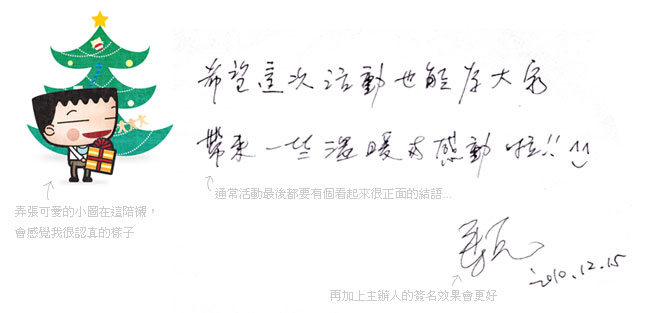 希望這次活動也能為大家
帶來一些溫暖与感動啦!! ^^
通常活動最後都要有個看起來很正面的結語...
弄張可愛的小圖在這陪襯，
會感覺我很認真的樣子
2010.12.15
再加上主辦人的簽名效果會更好